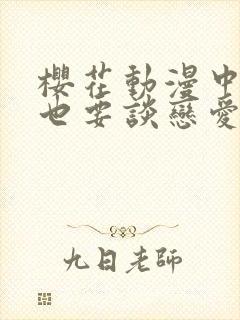 櫻花動漫中
也要談戀愛
九日老師